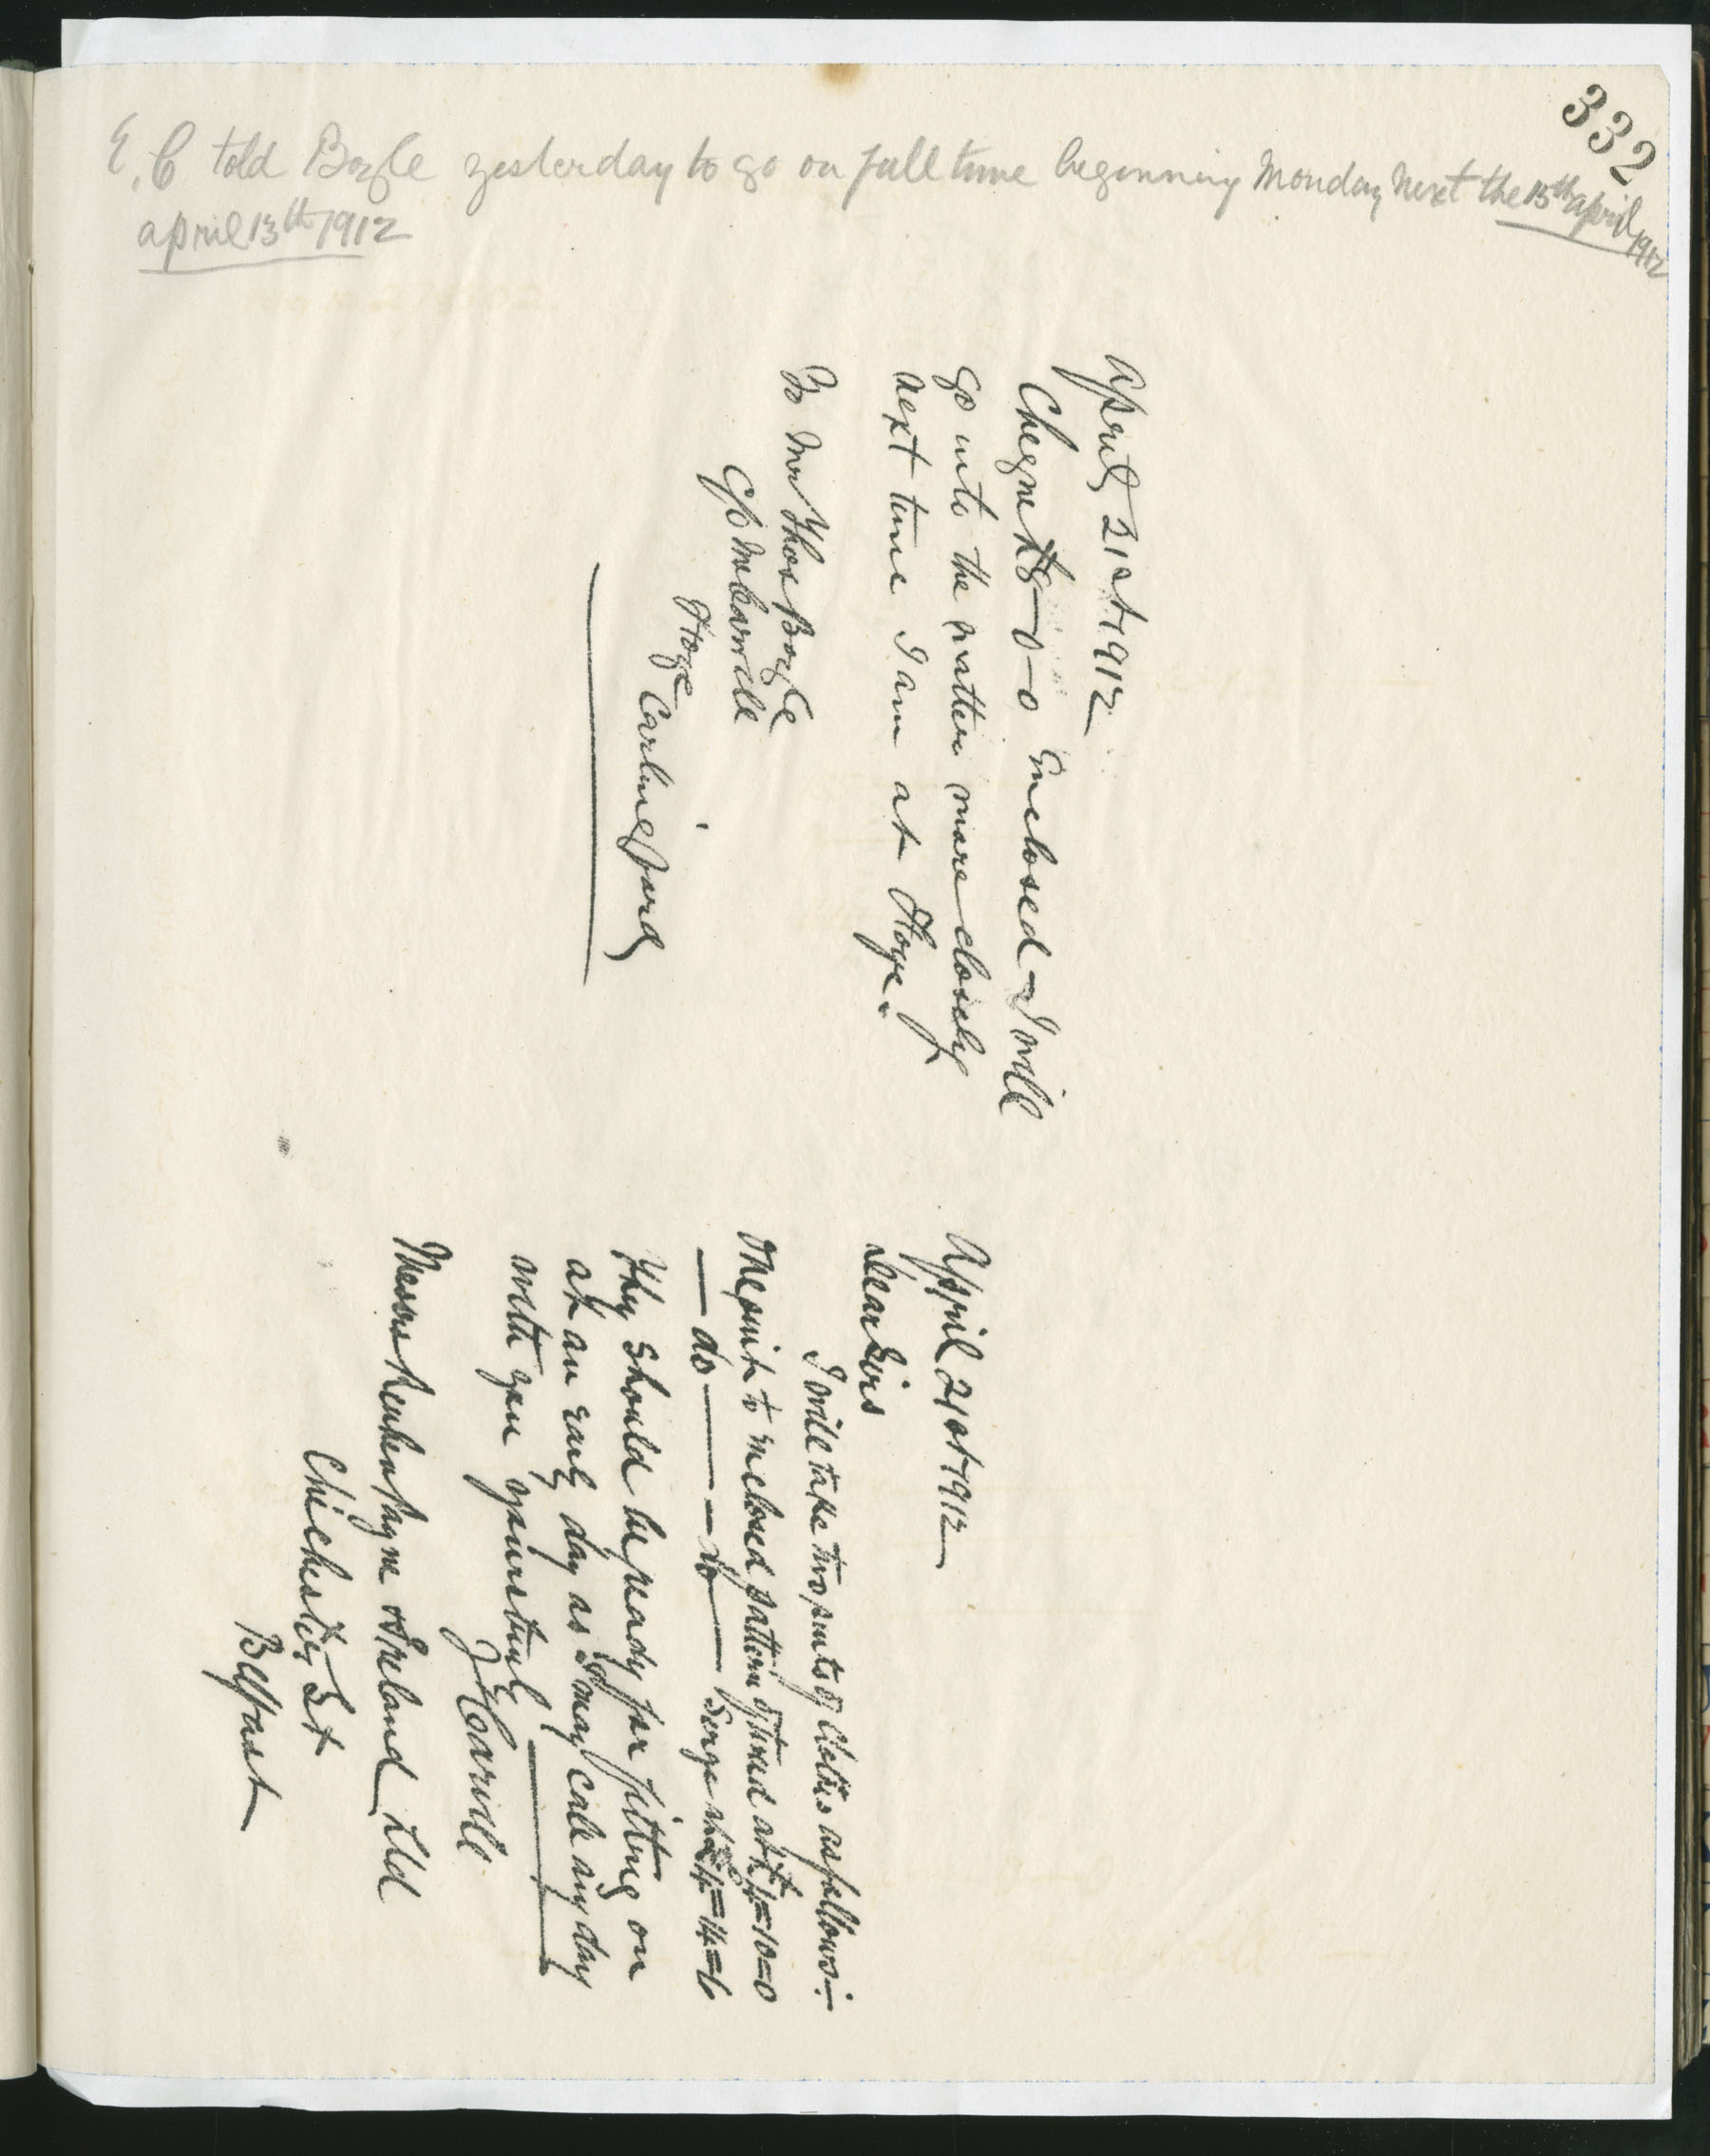 332
E. C told Boyle yesterday to go on full time beginning Monday next the 15th april 1912
april 13th 1912
April 21st 1912
Cheque £8-0-0 Enclosed - I will
go into the matter more closely
next time I am at Hoye.
To Mr Thos Boyle
C/o Mr Carvill
Hoye
Carlingford
April 21st 1912
Dear Sirs
I will take two suits of Clothes as follows:-
One suit to enclosed pattern of tweed at £4=10=0
— do — — do — Serge at £4=14=6
they should be ready for fitting on
at an early day as I may call any day
with you yours truly
J Carvill
Messrs Payne & Ireland Ltd
Chichester St
Belfast